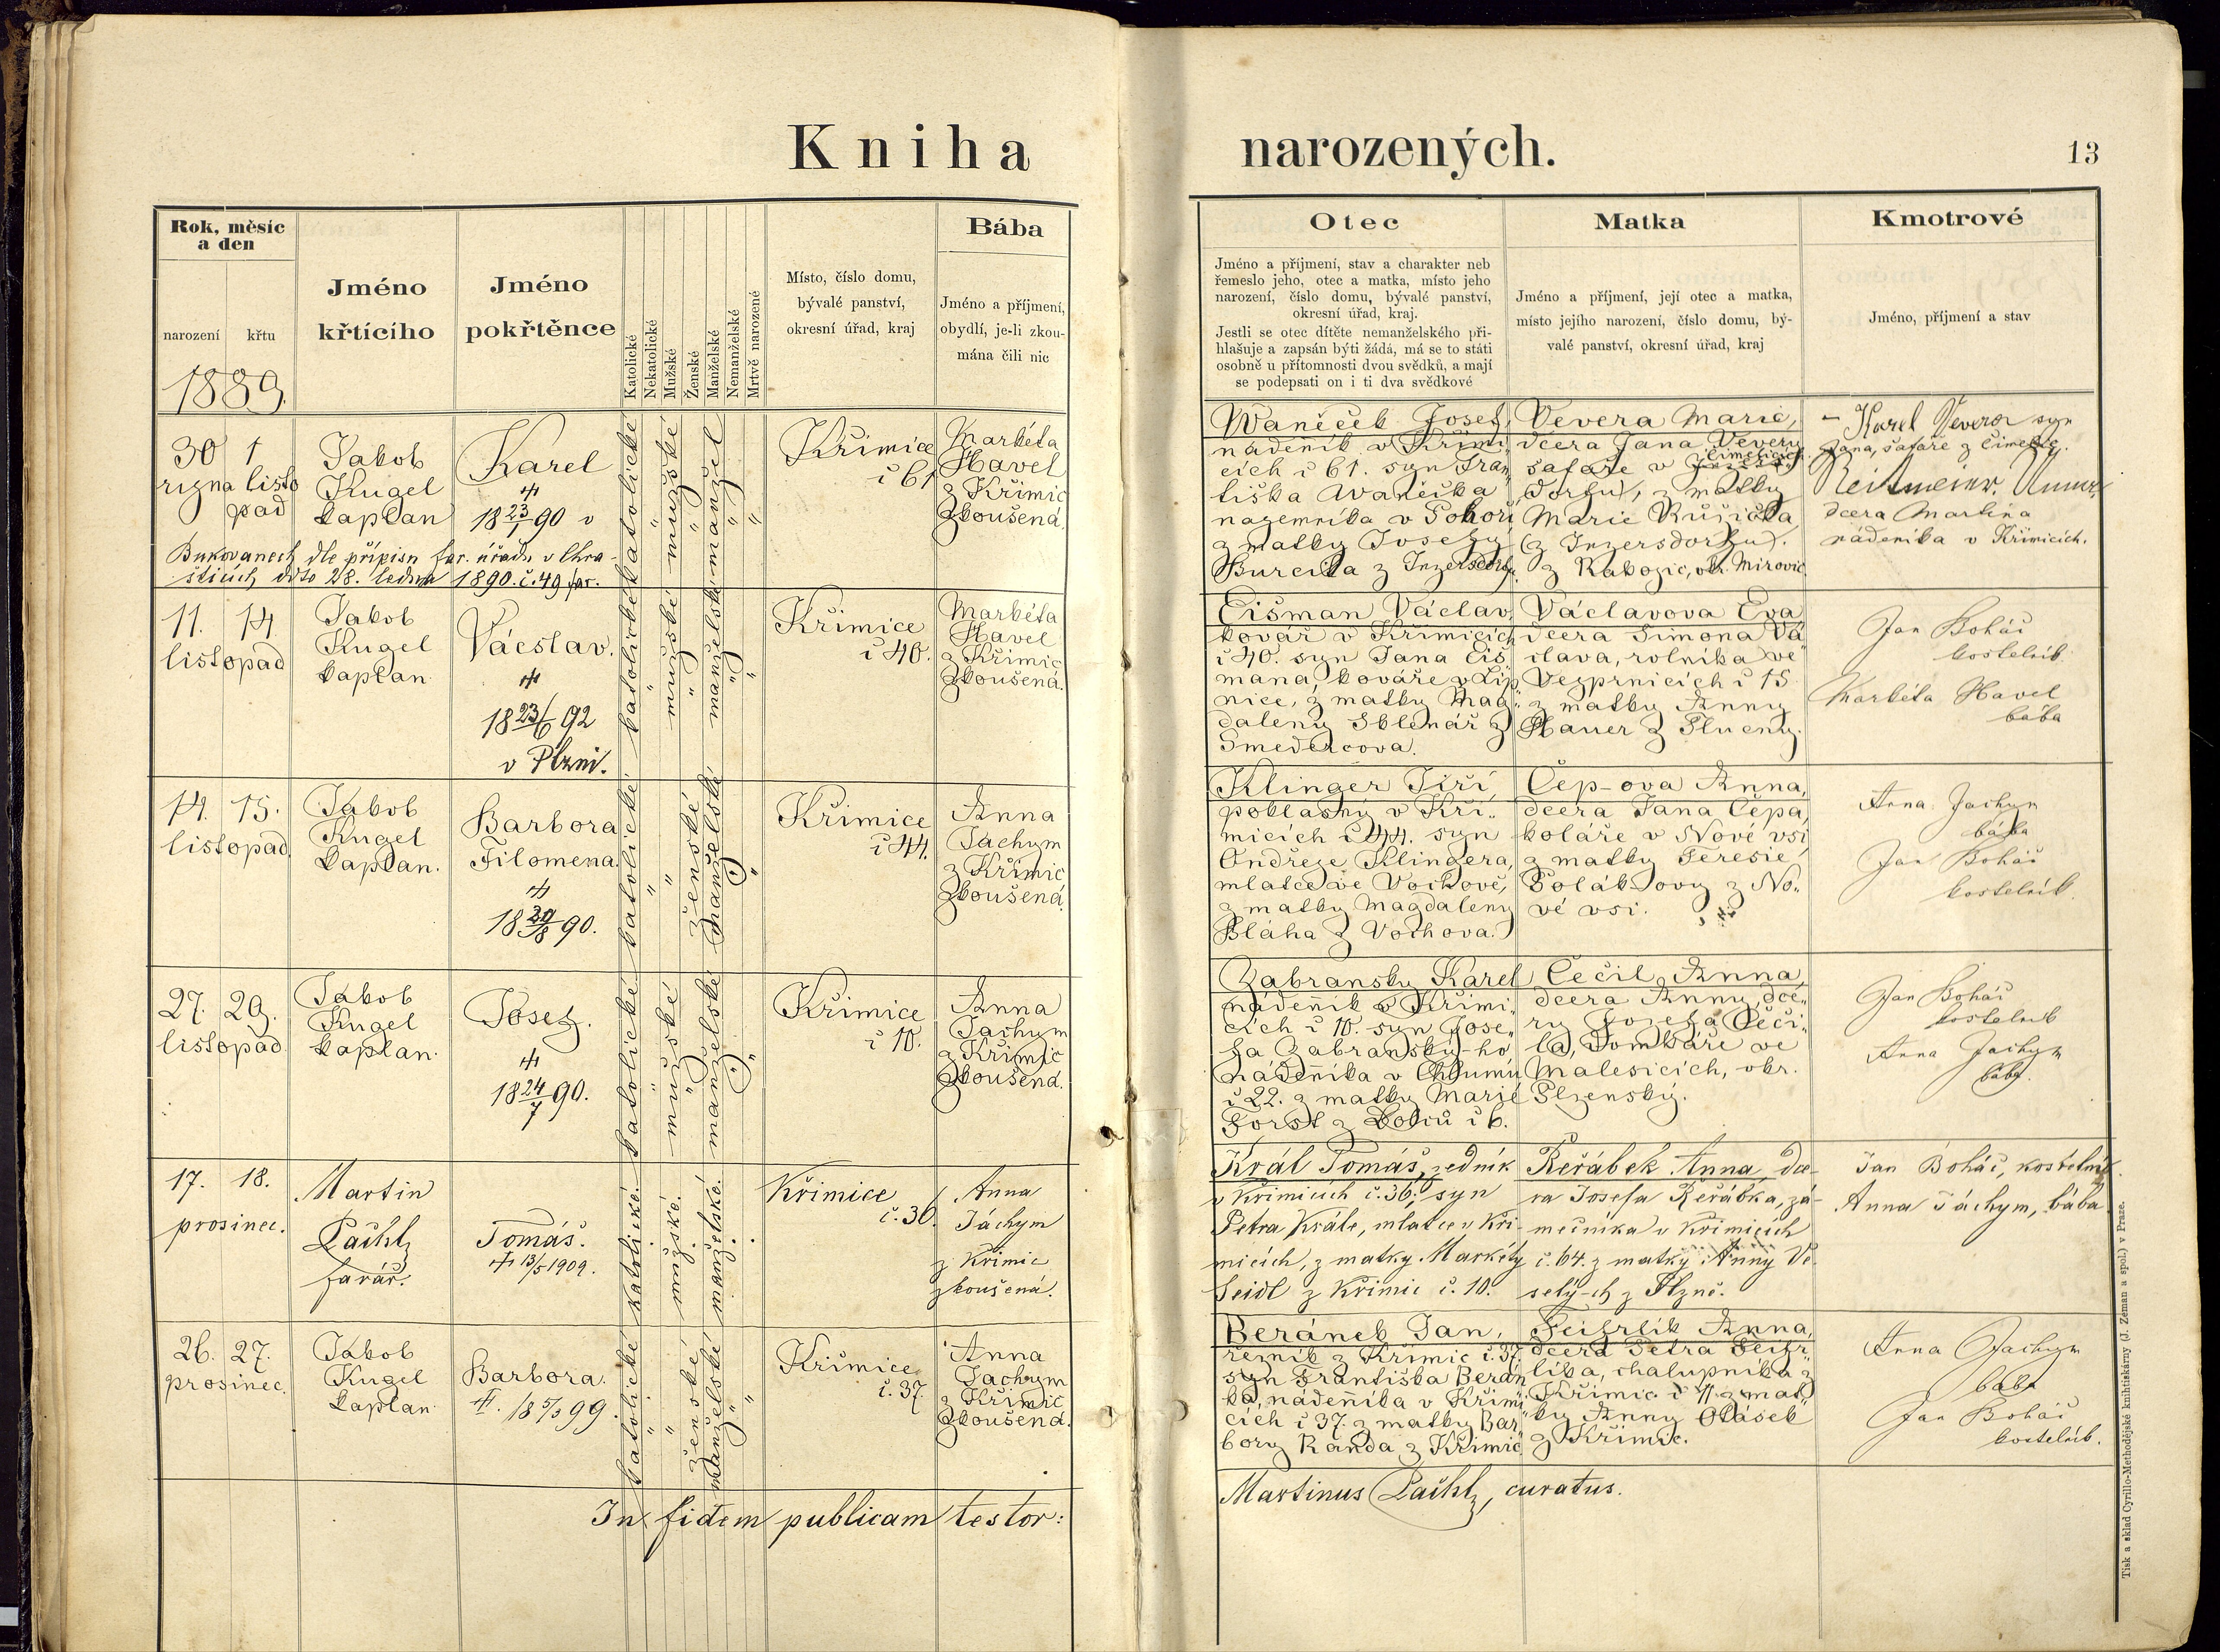 Kniha narozených.
13
Rok, měsíc
a den
narození
křtu
1889.
Jméno
křtícího
Jméno
pokřtěnce
Katolické
Nekatolické
Mužské
Ženské
Manželské
Nemanželské
Mrtvě narozené
Místo, číslo domu,
bývalé panství,
okresní úřad, kraj
Bába
Jméno a příjmení,
obydlí, je-li zkou-
mána čili nic
Otec
Jméno a příjmení, stav a charakter neb
řemeslo jeho, otec a matka, místo jeho
narození, číslo domu, bývalé panství,
okresní úřad, kraj.
Jestli se otec dítěte nemanželského při-
hlašuje a zapsán býti žádá, má se to státi
osobně u přítomnosti dvou svědků, a mají
se podepsati on i ti dva svědkové
Matka
Jméno a příjmení, její otec a matka,
místo jejího narození, číslo domu, bý-
valé panství, okresní úřad, kraj
Kmotrové
Jméno, příjmení a stav
30 1
října listo
pad
Jakob
Kugel
kaplan
Karel
18 23/1 90 v
Bukovanech dle přípisu far. úřadu v Chra-
šticích ddto 28. ledna 1890. č. 49 far.
katolické
mužské
manžel
Křimice
č 61
Markéta
Havel
z Křimic
zkoušená.
Waněček Josef,
nádeník v Křimi
cích č 61. syn Fran
tiška Waněčka
nájemníka v Pohoří
z matky Josefy
Burčika z Inzersdorfu.
Vevera Marie,
dcera Jana Vevery
šafáře v Čimelicích
dorfu), z matky
Marie Růžička
(z Inzersdorfu).
z Rakozic, okr. Mirovic
- Karel Vevera syn
Jana, šafáře z Čimelic.
dcera Martina
nádeníka v Křimicích.
11. 14
listopad
Jakob
Kugel
kaplan
Vácslav.
18 23/6 92
v Plzni.
katolické
mužské
manželské
Křimice
č 40.
Markéta
Havel
z Křimic
zkoušená.
Čišman Václav,
kovář v Křimicích
č 40. syn Jana Čiš
mana, kováře v Lip
nice, z matky Mag
daleny Sklenář z
Václavova Eva
dcera Šimona Vá
clava, rolníka ve
Vezprnicích č 15
z matky Anny
Hauer z
Jan Boháč
kostelník
Markéta Havel
bába
14. 15.
listopad.
Jakob
Kugel
kaplan.
Barbora
Filomena.
18 90.
katolické
ženské
manželské
Křimice
č 44.
Anna
Jachym
z Křimic
zkoušená
Klinger Jiří,
poklasný v Kři
micích č 44. syn
Ondřeje Klingera,
mlatce ve Vochově,
z matky Magdaleny
Bláha z Vochova.
Čep-ova Anna,
dcera Jana Čepa,
koláře v Nové vsi
z matky Teresie
Polák-ovy z No
vé vsi.
Anna Jachym
bába
Jan Boháč
kostelník.
27. 29.
listopad
Jakob
Kugel
kaplan.
Josef.
18 24/7 90.
katolické
mužské
manželské
Křimice
č 10.
Anna
Jachym
z Křimic
zkoušená.
Zabransky Karel
nádenník v Křimi
cích č 10. syn Jose
fa Zabranský-ho
nádenníka v Chlumu
č 22. z matky Marie
Forst z č 6.
Čečil Anna,
dcera Anny, dce
ry Josefa Čeči
la, domkáře ve
Malesicích, okr.
Plzenský.
Jan Boháč
kostelník
Anna Jachym
bába.
17. 18.
prosinec.
Martin
Pachl,
farář.
Tomáš.
13/5 1909.
katolické.
mužské.
manželské.
Křimice
č. 36.
Anna
Jáchym
z Křimic
zkoušená.
Král Tomáš, zedník
v Křimicích č. 36, syn
Petra Krále, mlatce v Kři-
micích, z matky Markéty
Seidl z Křimic č. 10.
Řeřábek Anna, dce-
ra Josefa Řeřábka, zá-
mečníka v Křimicích
č. 64. z matky Anny Ve-
selý-ch z Plzně.
Jan Boháč, kostelník
Anna Jáchym, bába
26. 27.
prosinec.
Jakob
Kugel
kaplan
Barbora.
18 5/3 99.
katolické
ženské
manželské
Křimice
č. 37
Anna
Jachym
z Křimic
zkoušená.
Beránek Jan,
řezník z Křimic č. 37
syn Františka Berán
ka, nádenníka v Křimi
cích č 37. z matky Bar
bory Randa z Křimic
Feifrlík Anna,
dcera Petra Feifr
líka, chalupníka z
Křimic č 11 z mat
ky Anny Otásek
z Křimic.
Anna Jachym
bába
Jan Boháč
kostelník.
In fidem publicam testor:
Martinus Pachl, curatus.
Tisk a sklad Cyrillo-Methodějské knihtiskárny (J. Zeman a spol.) v Praze.